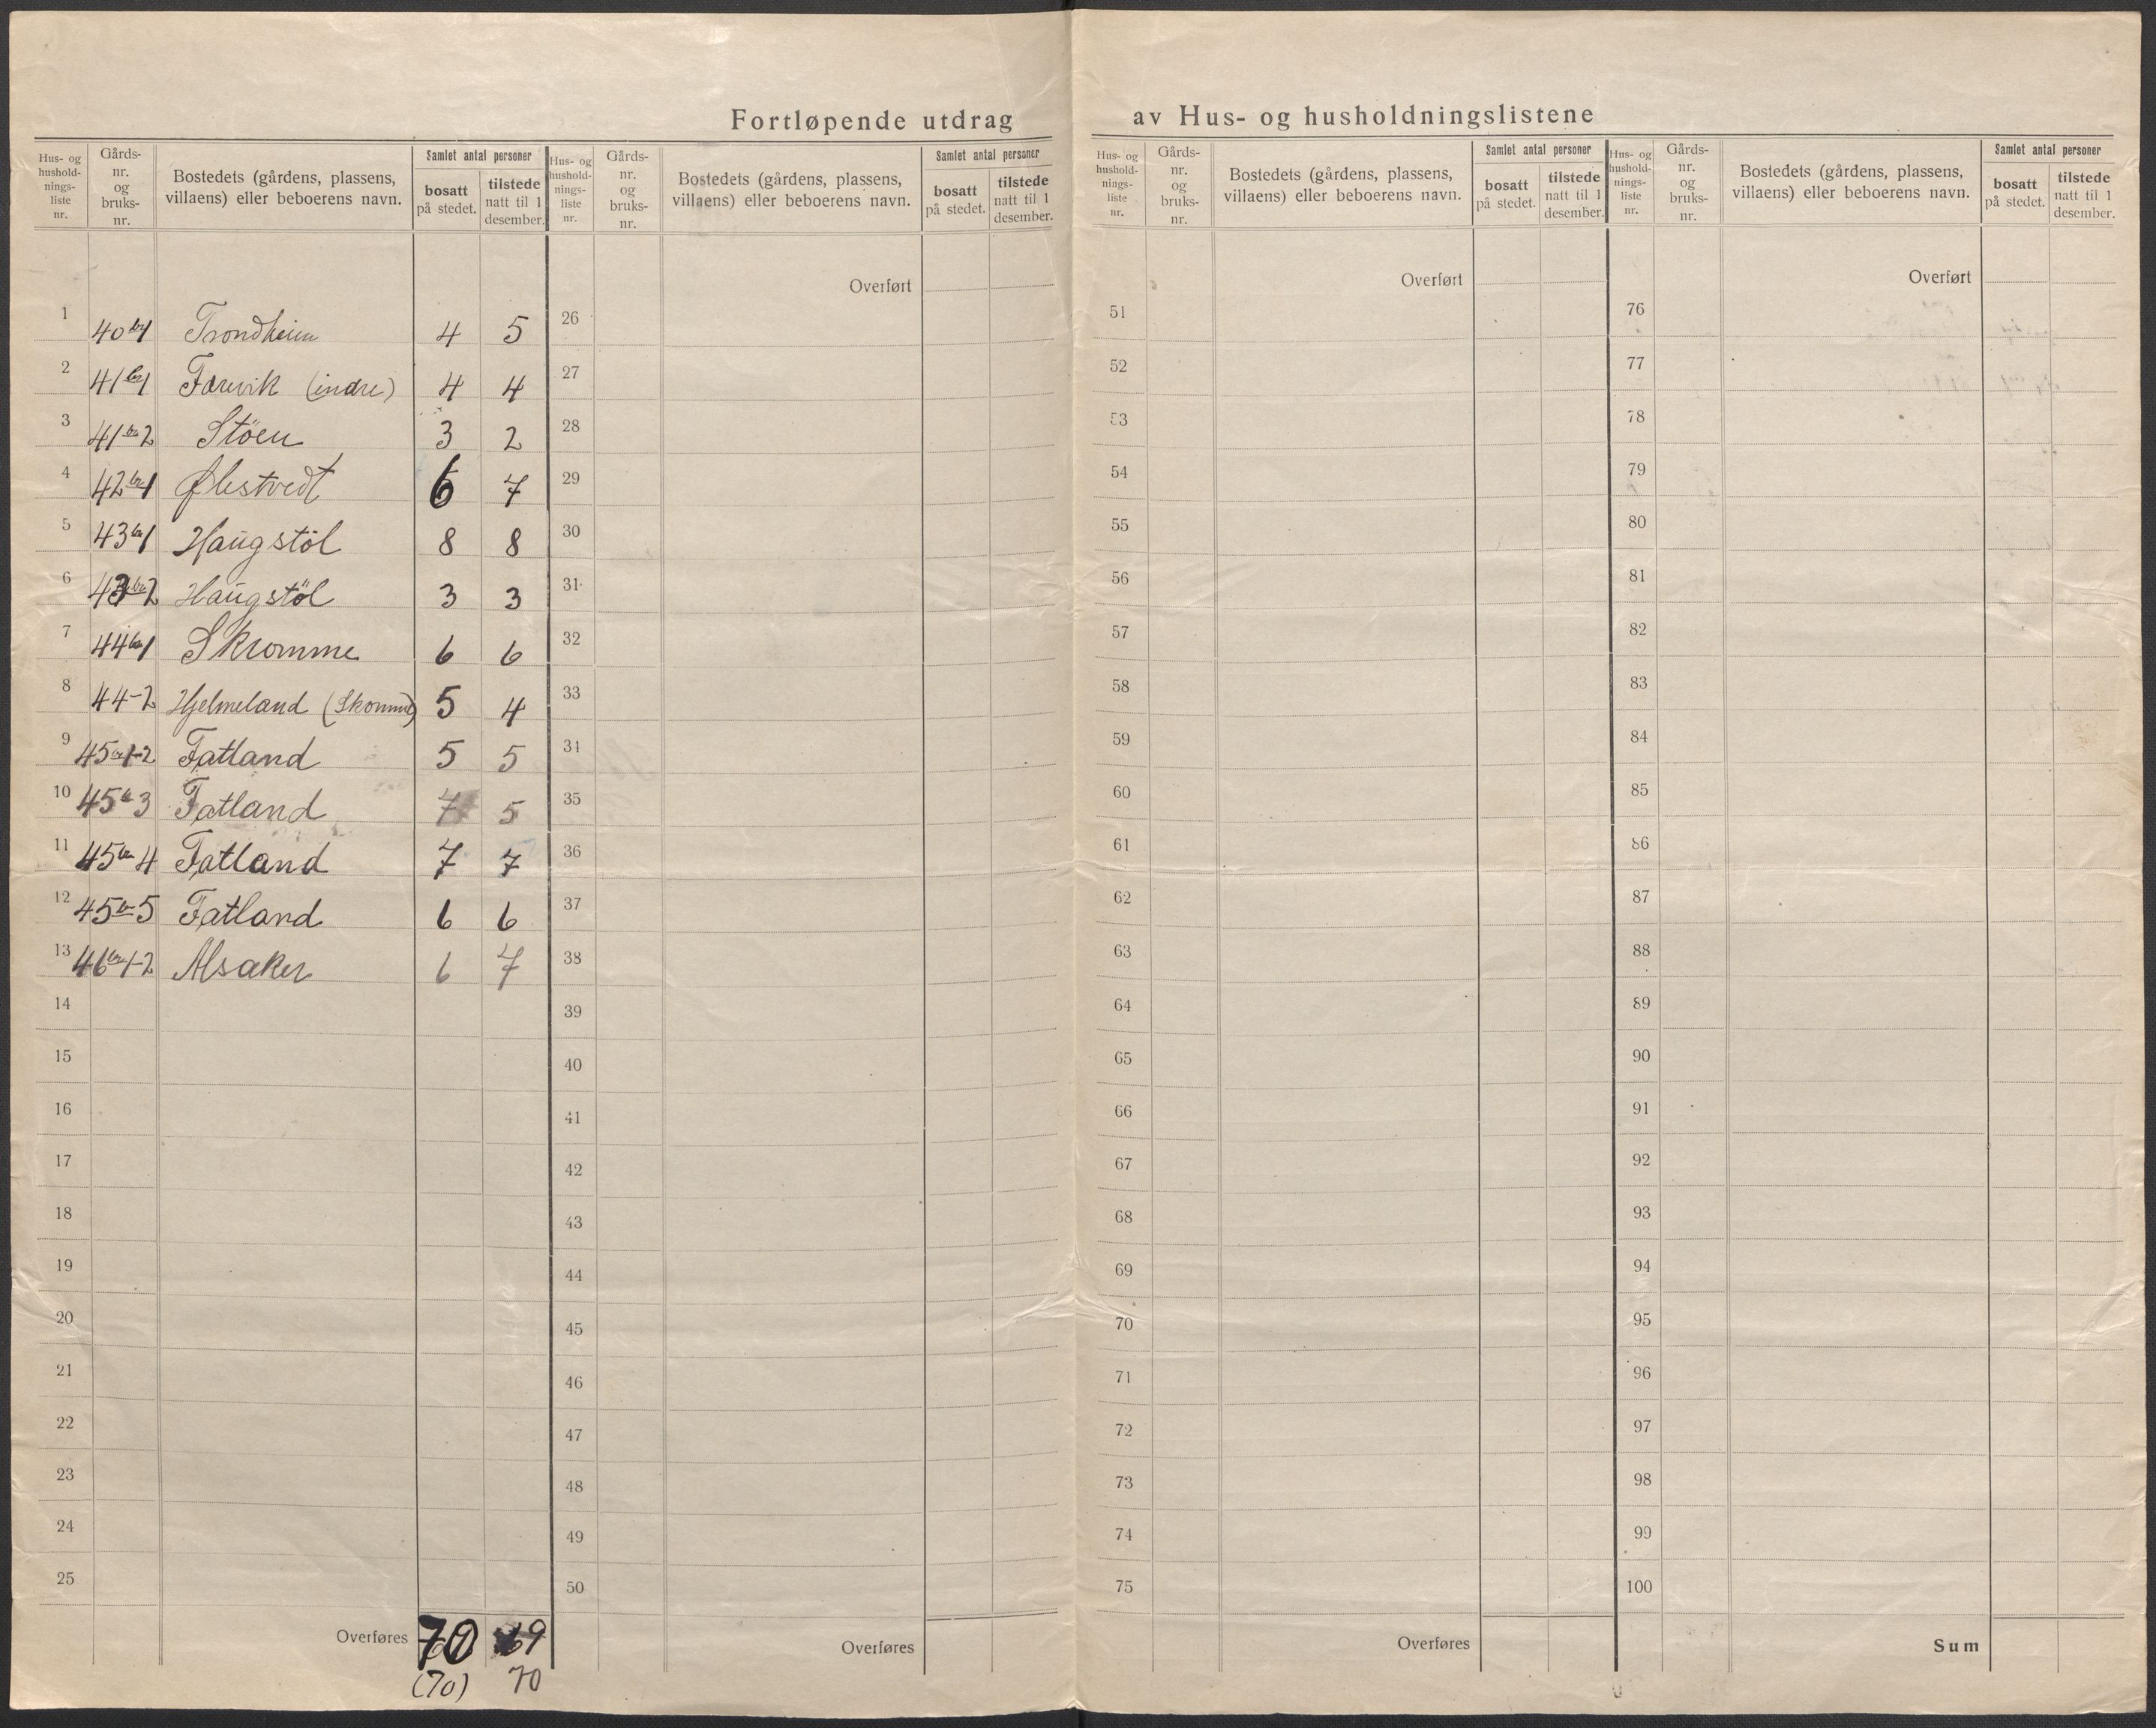 Fortløpende utdrag av Hus- og husholdningslistene
Hus- og hushold-nings-liste nr. Gårds-nr. og bruks-nr. Bostedets (gårdens, plassens, villaens) eller beboerens navn. Samlet antal personer bosatt på stedet. tilstede natt til 1 desember.
Hus- og hushold-nings-liste nr. Gårds-nr. og bruks-nr. Bostedets (gårdens, plassens, villaens) eller beboerens navn. Samlet antal personer bosatt på stedet. tilstede natt til 1 desember.
Hus- og hushold-nings-liste nr. Gårds-nr. og bruks-nr. Bostedets (gårdens, plassens, villaens) eller beboerens navn. Samlet antal personer bosatt på stedet. tilstede natt til 1 desember.
Hus- og hushold-nings-liste nr. Gårds-nr. og bruks-nr. Bostedets (gårdens, plassens, villaens) eller beboerens navn. Samlet antal personer bosatt på stedet. tilstede natt til 1 desember.
1 40 br 1 Trondheim 4 5
2 41 br 1 Færevik (indre) 4 4
3 41 br 2 Stöen 3 2
4 42 br 1 Ølestvedt 6 7
5 43 br 1 Haugstöl 8 8
6 43 br 2 Haugstöl 3 3
7 44 br 1 Skromme 6 6
8 44-2 Hjelmeland 5 4
9 45 br 1-2 Fatland 5 5
10 45 br 3 Fatland 7 5
11 45 br 4 Fatland 7 7
12 45 br 5 Fatland 6 6
13 46 br 1-2 Alsaker 6 7
14
15
16
17
18
19
20
21
22
23
24
25
Overføres 70 69
(70) 70
Overført
26
27
28
29
30
31
32
33
34
35
36
37
38
39
40
41
42
43
44
45
46
47
48
49
50
Overføres
Overført
51
52
53
54
55
56
57
58
59
60
61
62
63
64
65
66
67
68
69
70
71
72
73
74
75
Overføres
Overført
76
77
78
79
80
81
82
83
84
85
86
87
88
89
90
91
92
93
94
95
96
97
98
99
100
Sum